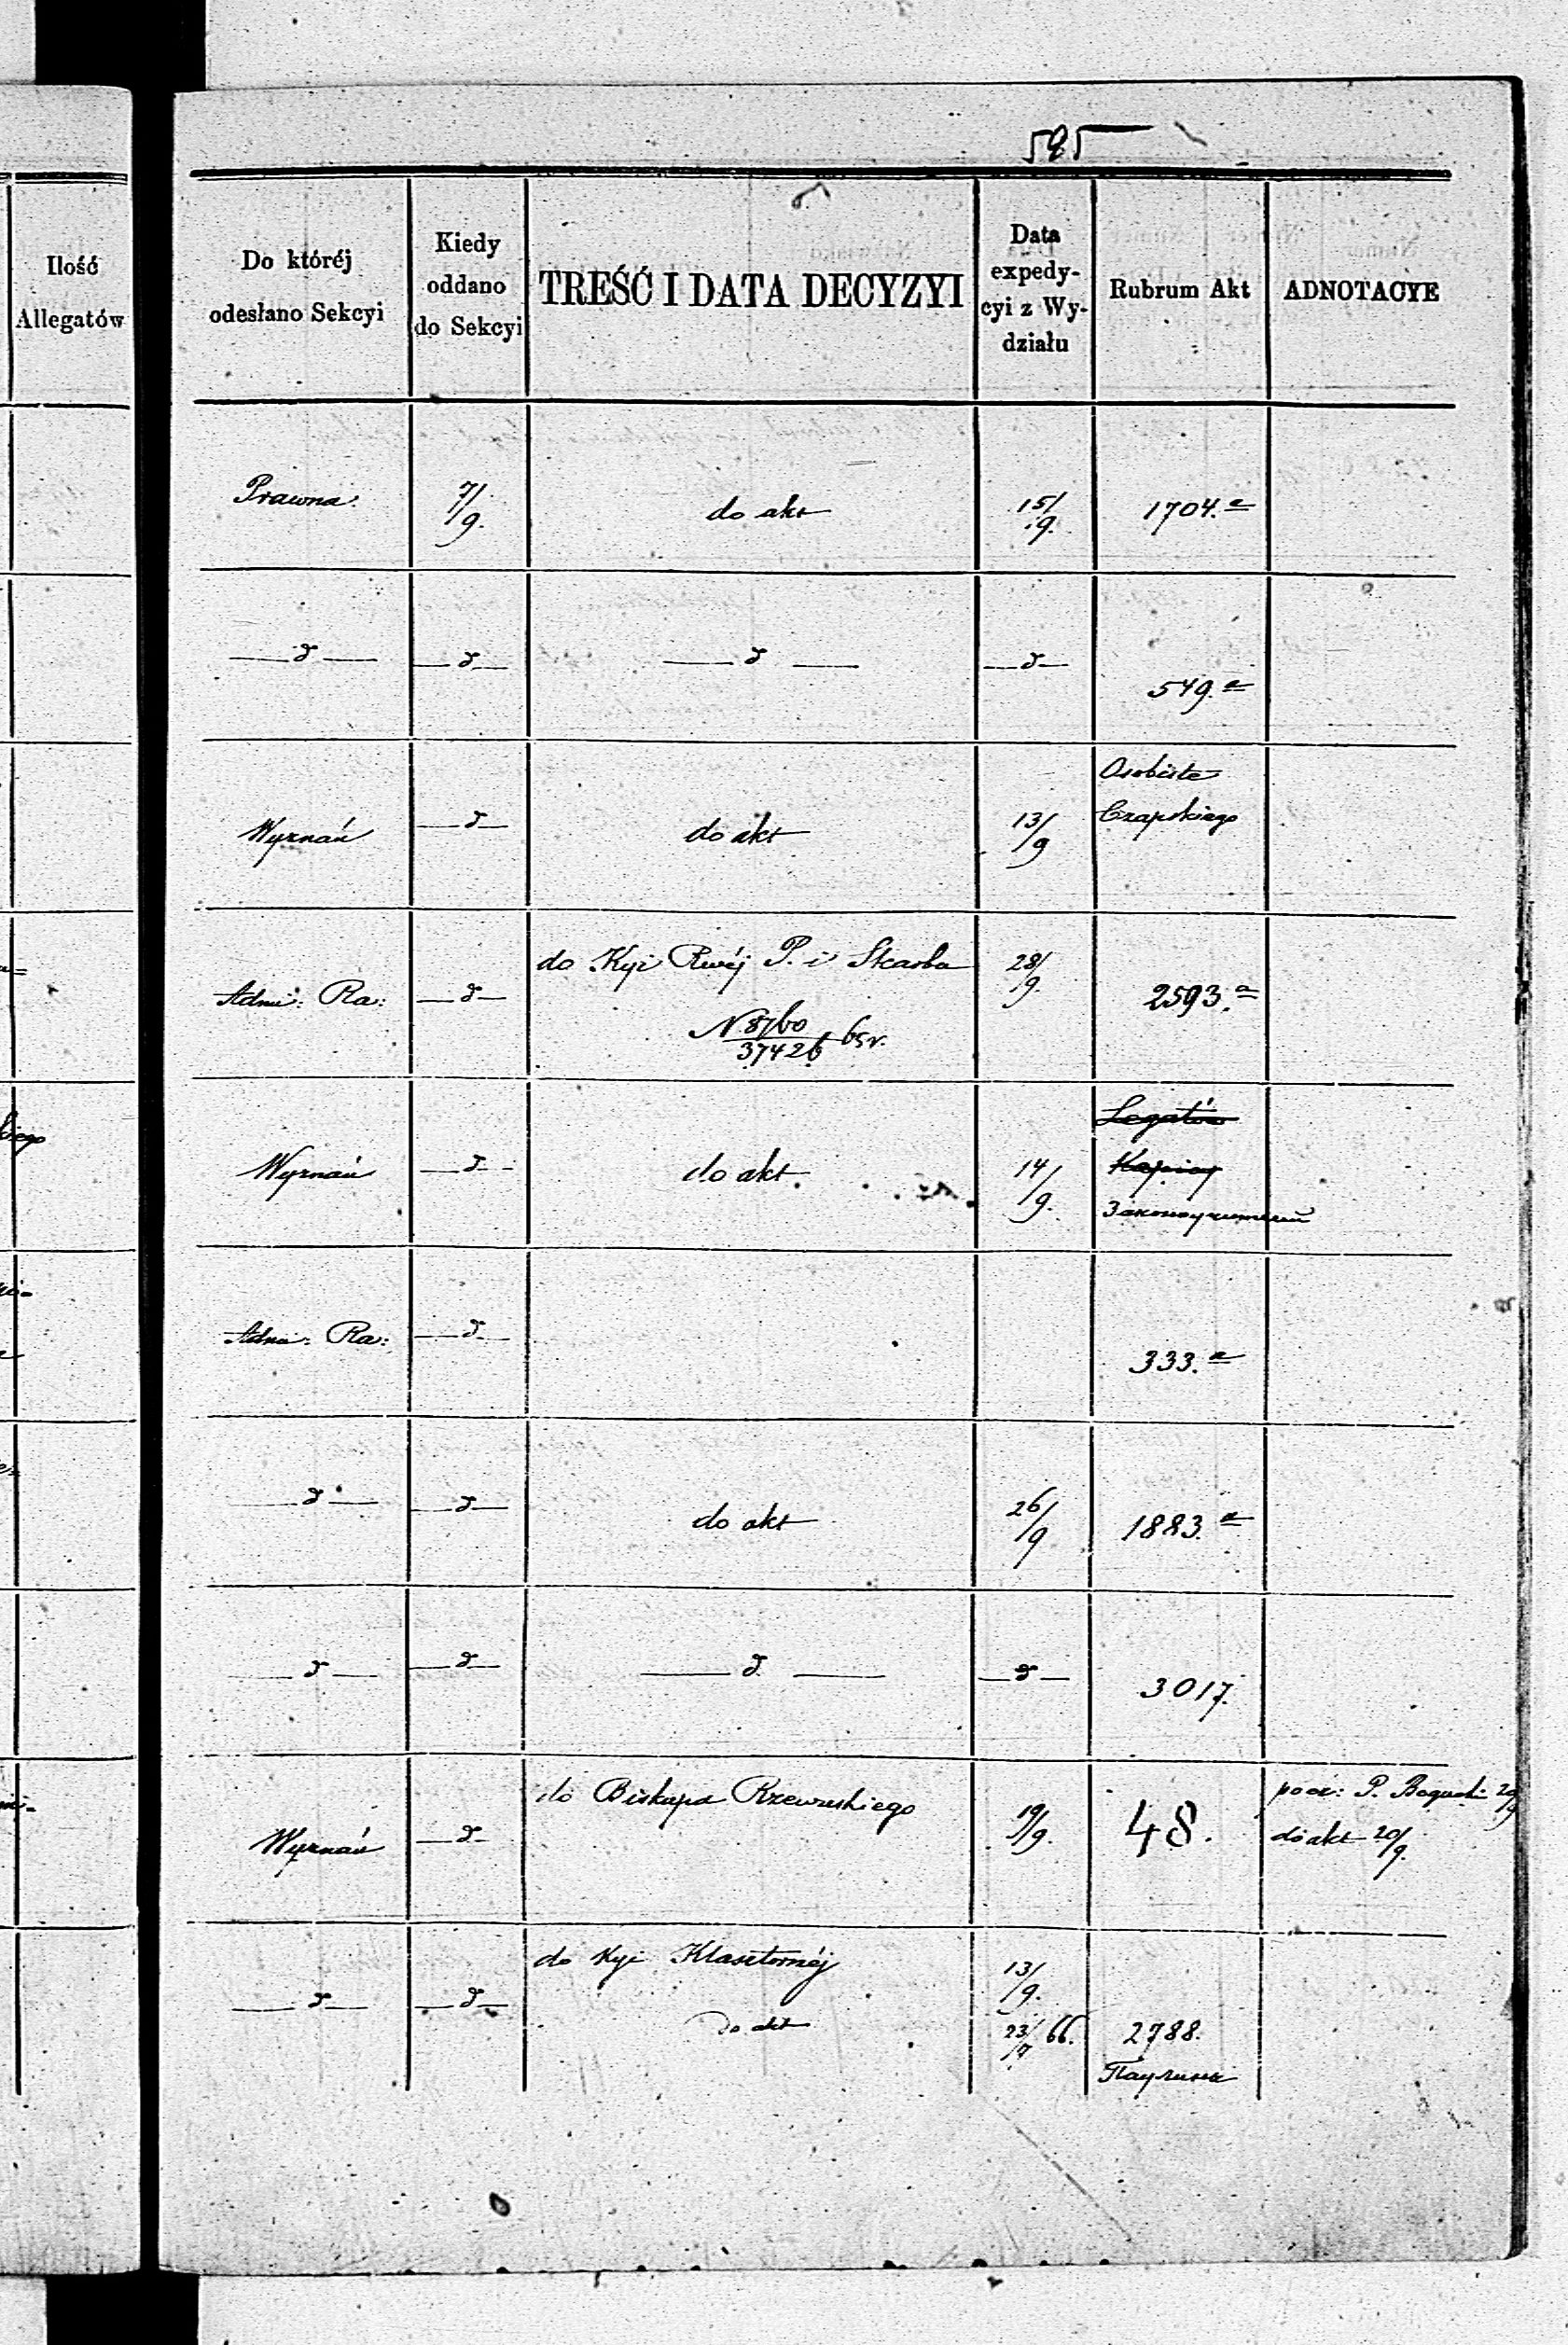 595
Ilość
Allegatów
Do któréj
odesłano Sekcyi
Kiedy
oddano
do Sekcyi
TREŚĆ I DATA DECYZYI
Data
expedy-
cyi z Wy-
działu
Rubrum Akt
ADNOTACYE
Prawna. 7/9. do akt 15/9. 1704.a
—d— —d— —d— —d— 549.a
Wyznań —d— do akt 13/9 Osobiste
Czapskiego
Adm: Ra: —d— do Kyi Rwéj P. i Skarbu 28/9. 2593.a
N 8760/37426 65 r.
Wyznań —d— do akt. 14/9. Legatów
Adm: Ra: —d— 333.a
—d— —d— do akt 26/9 1883.a
—d— —d— —d— —d— 3017.
Wyznań —d— do Biskupa Rzewuskiego 19/9. 48. P. Boguski 20/9
do akt 20/9.
—d— —d— do Kyi Klasztornéj 13/9.
do akt 23/7 66. 2788.
Паулины